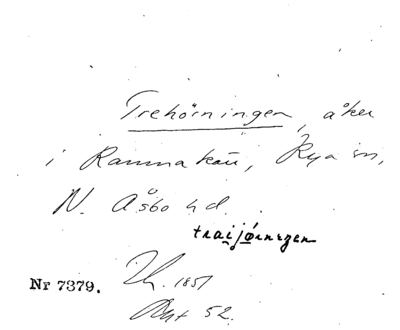 Trehörningen, åker
i Rammakärr, Rya sn,
N. Åsbo hd.
traijørnıgen
Nr 7379.
1851
52.